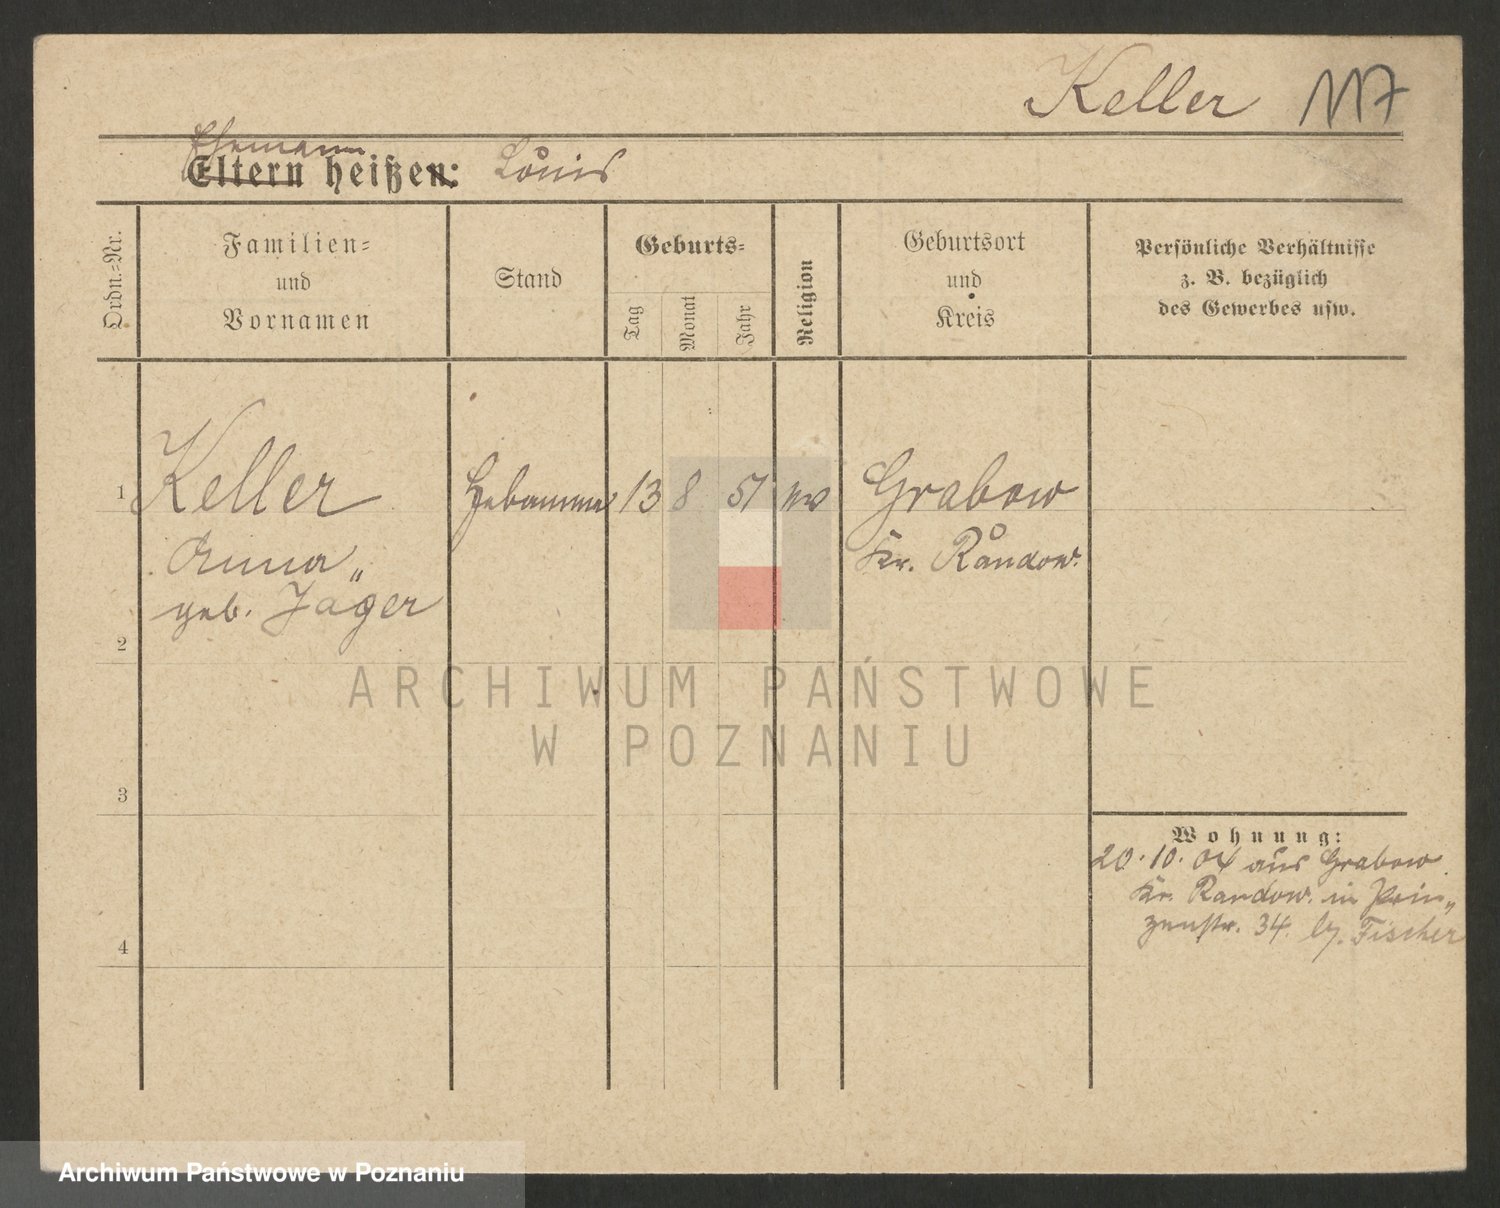 Keller 117
Ehemann
Eltern heißen: Louis
Ordn.=Nr.
Familien=
und
Vornamen
Stand
Geburts=
Tag
Monat
Jahr
Religion
Geburtsort
und
Kreis
Persönliche Verhältnisse
z. B. bezüglich
des Gewerbes usw.
1 Keller Hebamme 13 8 51 ev Grabow
Anna„ Kr. Randow.
geb. Jäger
2
ARCHIWUM PAŃSTWOWE
W POZNANIU
3
Wohnung:
20.10.04 aus Grabow
Kr. Randow. in Prin„
zenstr. 34. bj. Fischer
4
Archiwum Państwowe w Poznaniu